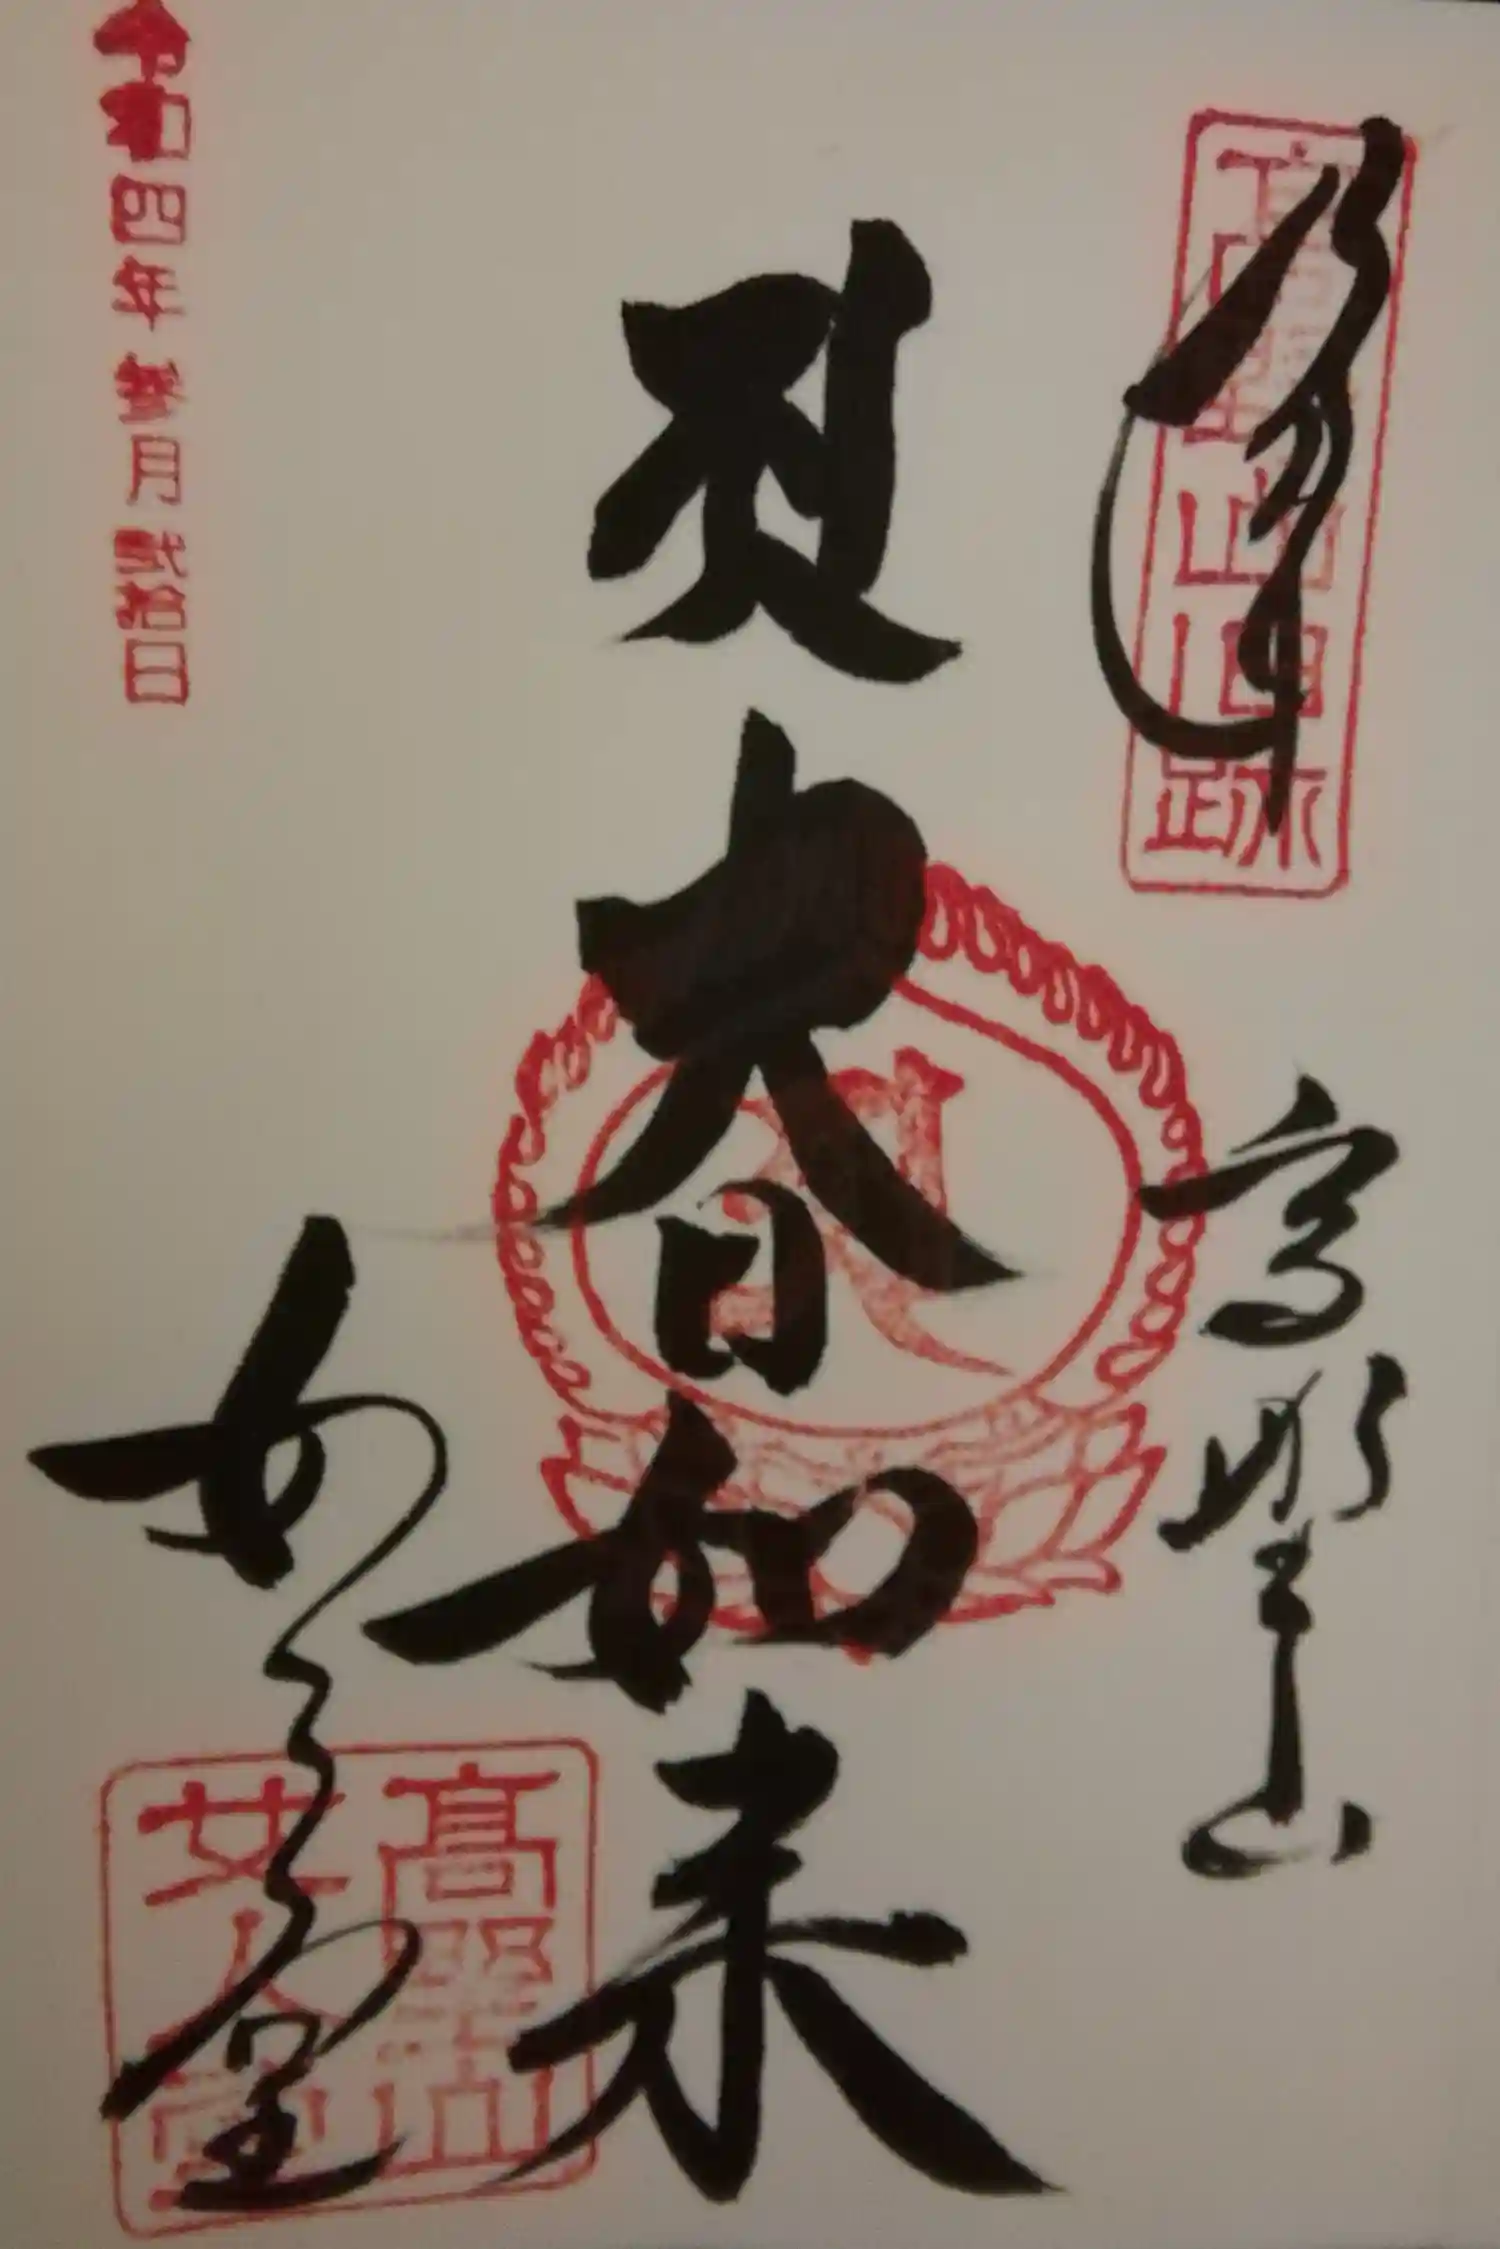 奉拝
高野山旧跡
高野山
大日如来
女人堂
高野山
女人堂
令和四年参月弐拾日